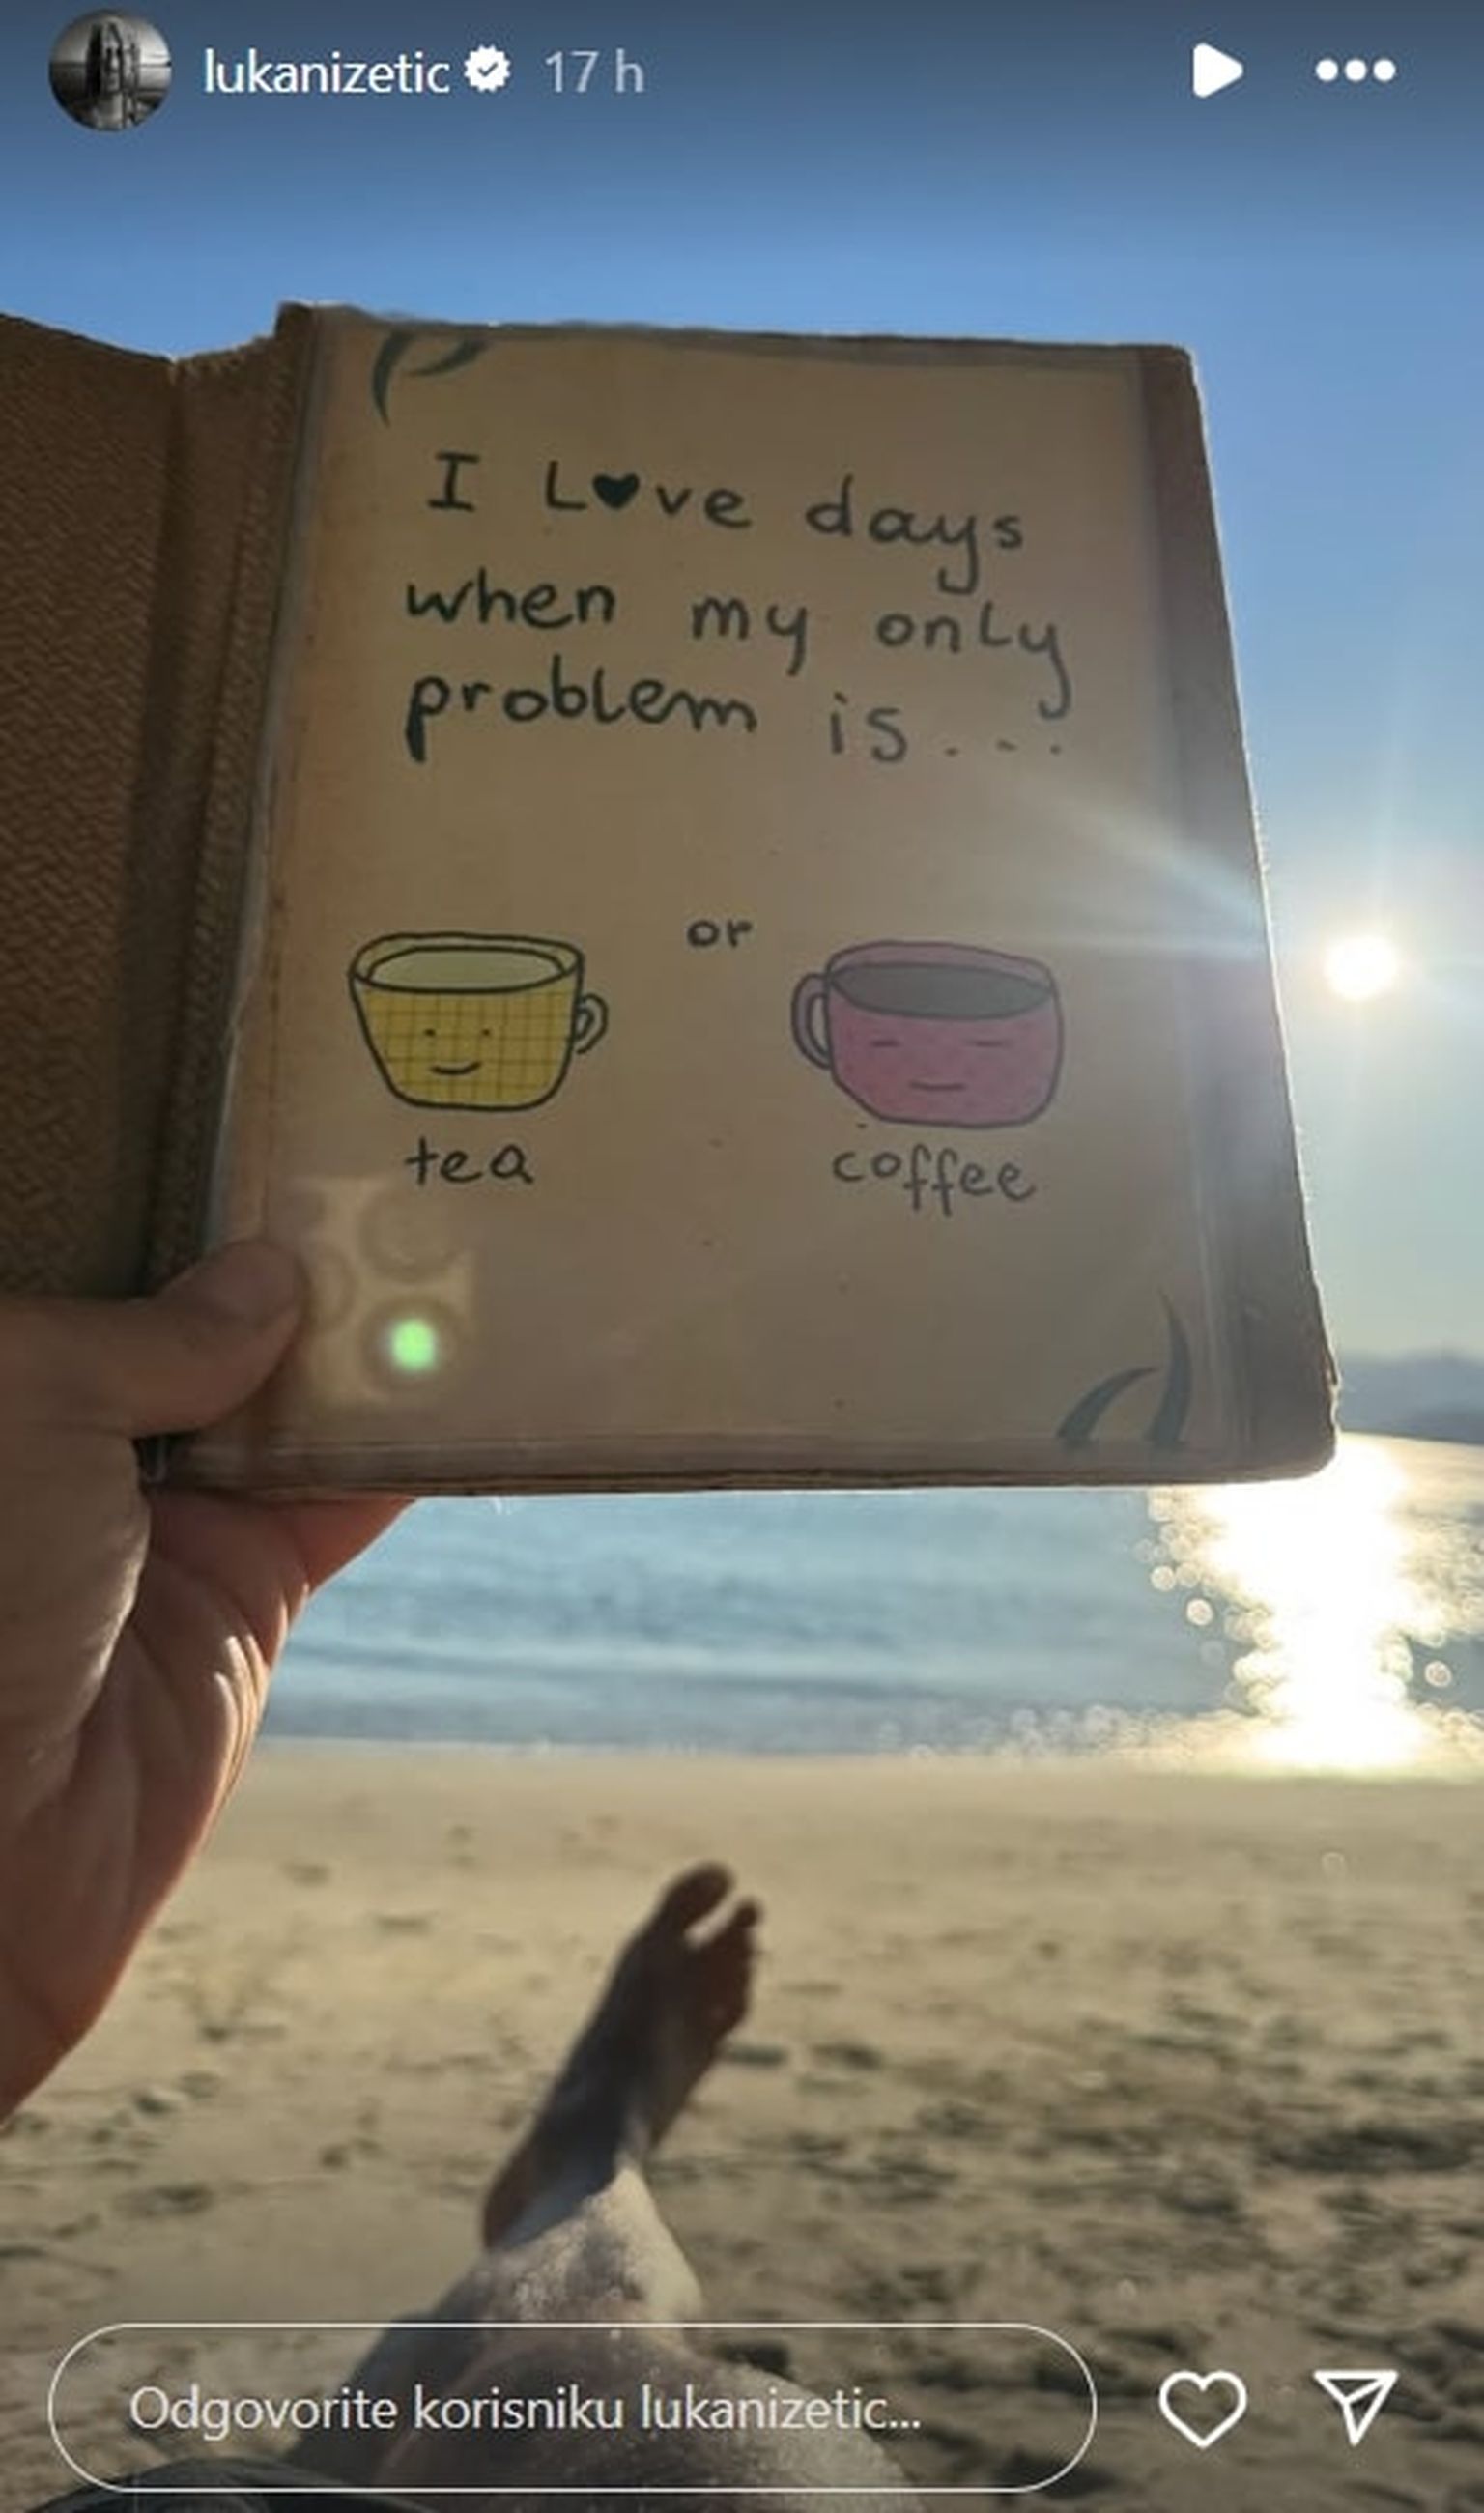 lukanizetic 17 h
I L♥ve days
when my only
problem is...
or
tea
coffee
Odgovorite korisniku lukanizetic...